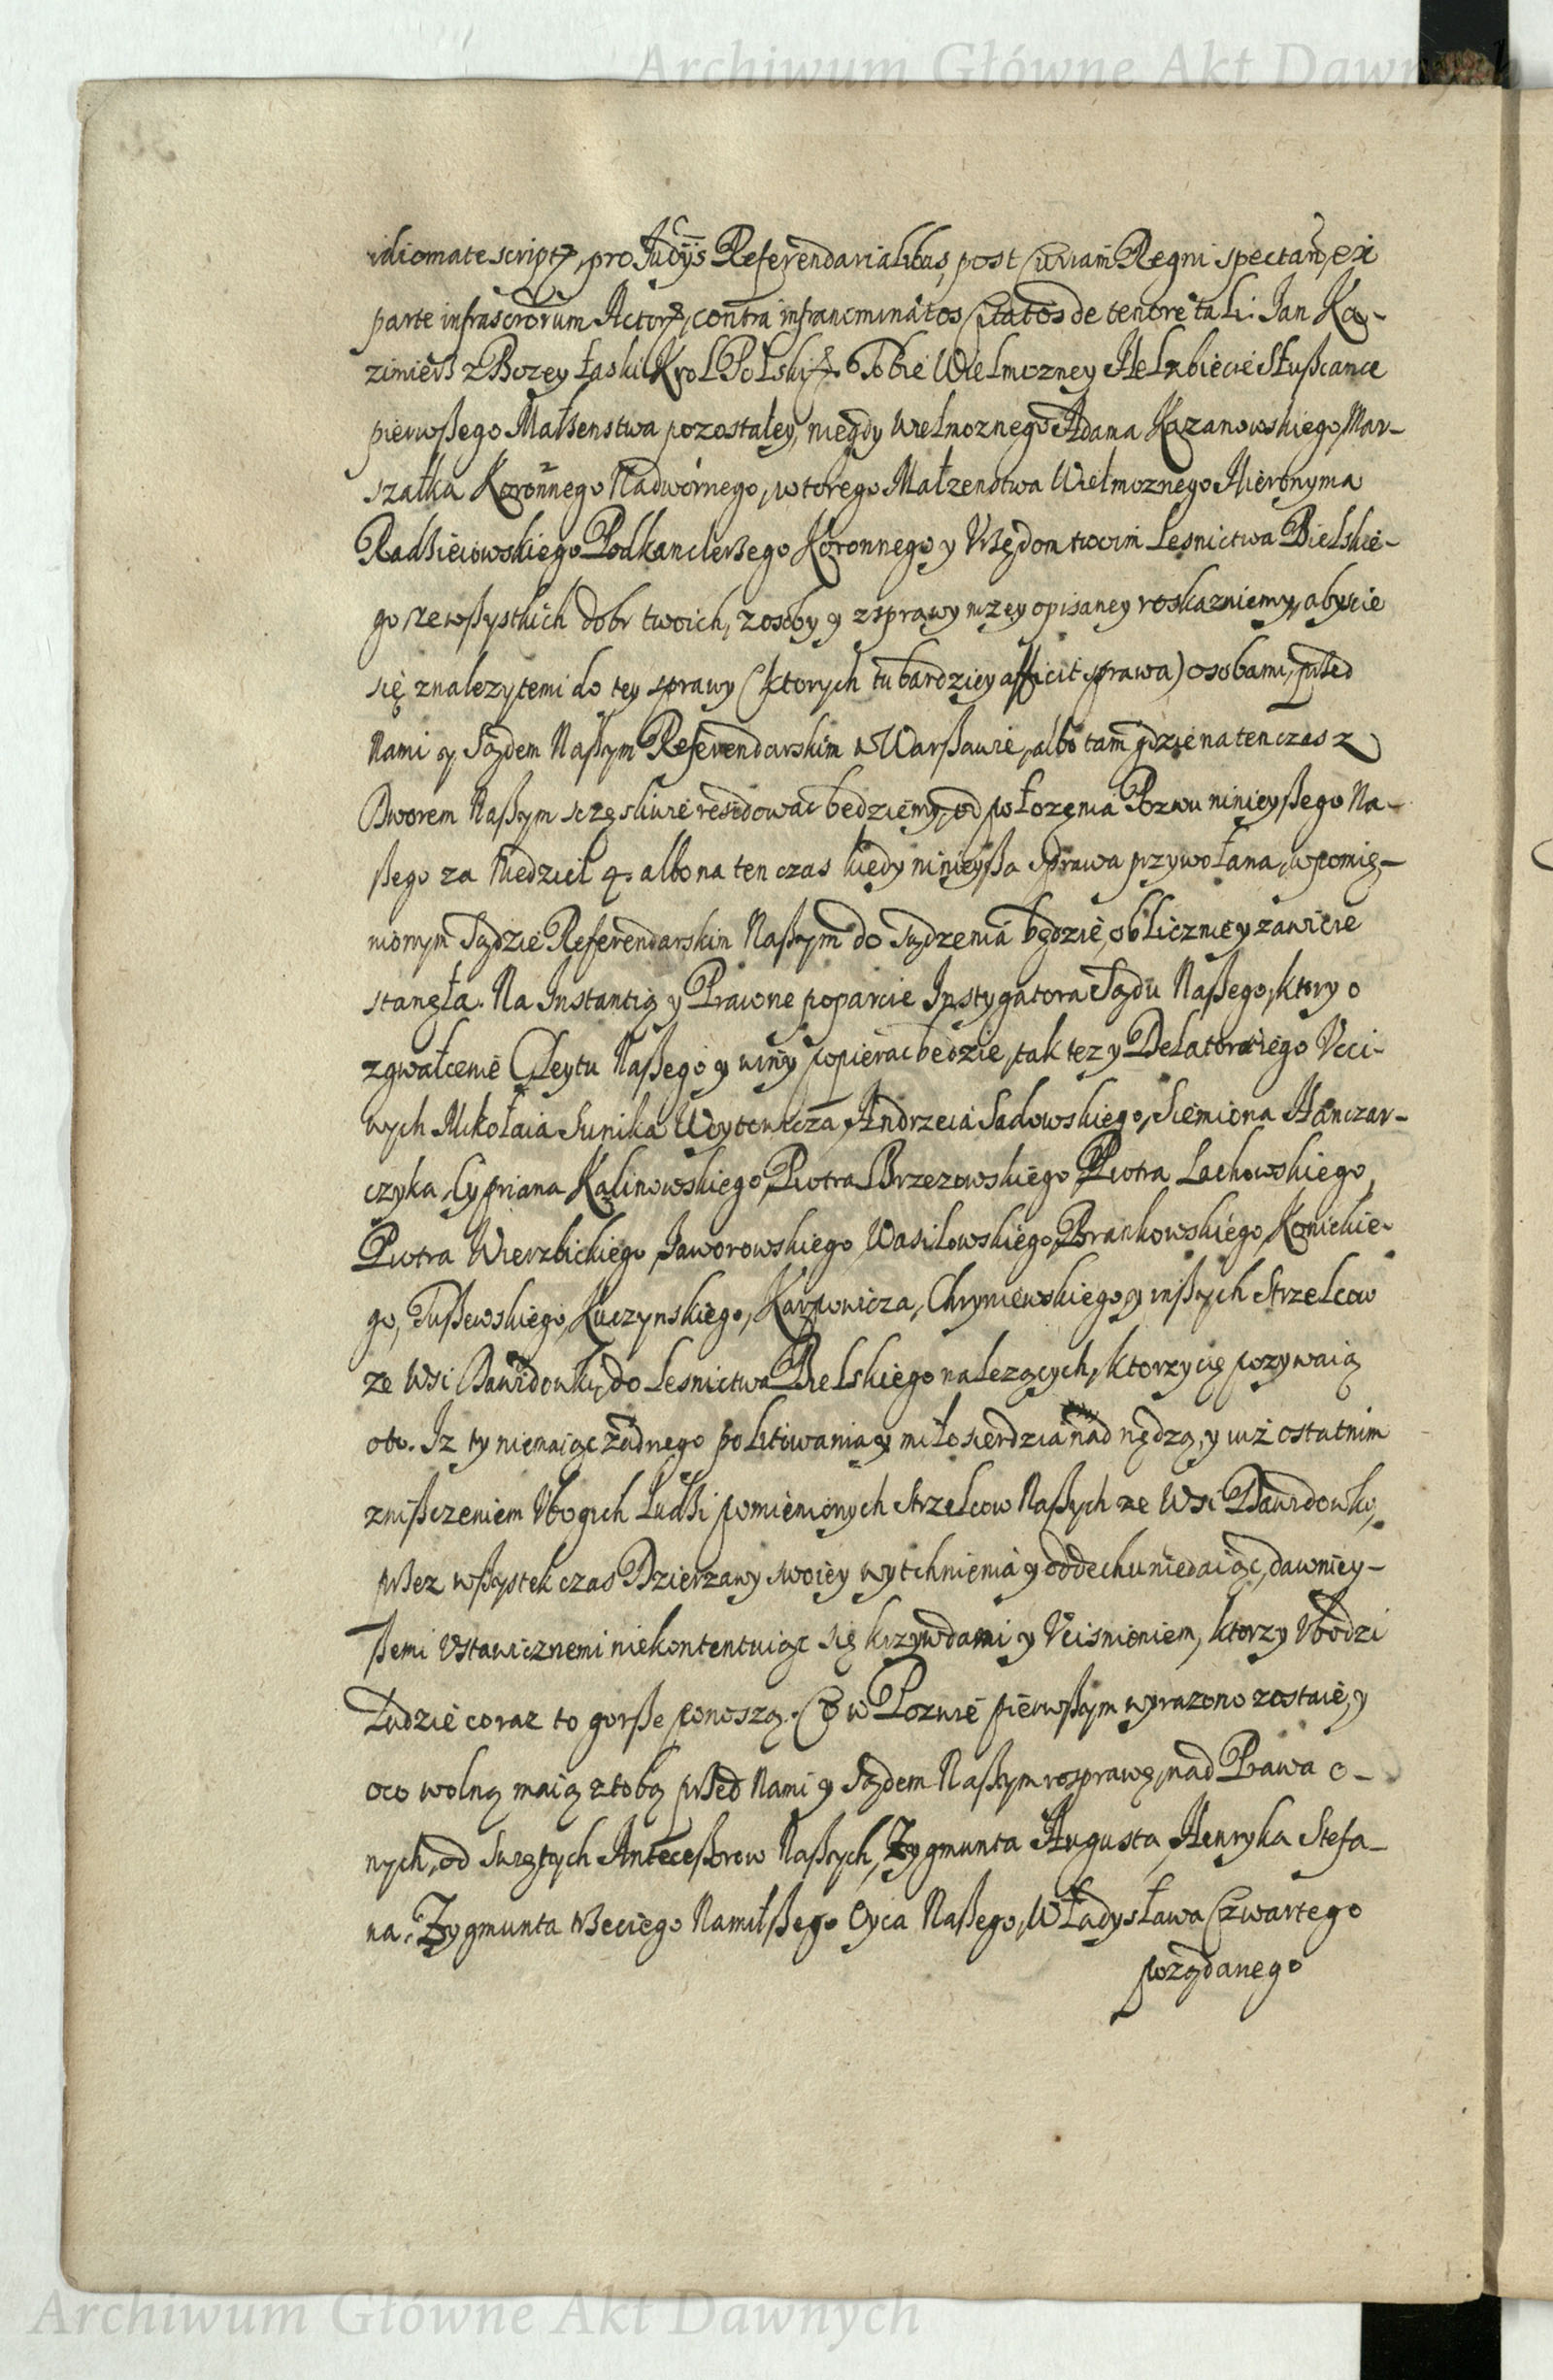 Archiwum Główne Akt Dawnych
idiomate script, pro Judÿs Referendarialibus, post Curiam Regni spectan, ex
parte infrascrorum Actor, contra infranominatos Citatos de tenore tali: Jan Ka-
zimierz z Bozey Łaski Krol Polski &. Tobie Wielmozney Helzbiecie Słuszcance
pierwßego Małzenstwa pozostałey, niegdy Wielmoznego Adama Kazanowskiego Mar-
szałka Koronnego Nadwornego, wtorego Małzenstwa Wielmoznego Hieronyma
Radzieiowskiego Podkanclerzego Koronnego y Vrzędom twoim Lesnictwa Bielskie-
go ze wßystkich dobr twoich, z osoby y z sprawy nizey opisaney roskazuiemy, abyscie
się z nalezytemi do tey sprawy (ktorych tu bardziey afficit sprawa) osobami, przed
Nami y Sądem Naßym Referendarskim w Warßawie, albo tam gdzie na ten czas z
Dworem Naßym sczęsliwie residowac bedziemy, od połozenia Pozwu ninieyßego Na-
ßego za Niedziel 4. albo na ten czas kiedy ninieyßa sprawa przywołana, w pomie-
nionym Sądzie Referendarskim Naßym do sądzenia będzie, oblicznie y zawicie
stanęła. Na Instantią y Prawne poparcie Instygatora Sądu Naßego, ktory o
zgwałcenie Gleytu Naßego y winy popierac bedzie, tak tez y Delatorow iego Vcci-
wych Mikołaia Sunika Woytowicza, Andrzeia Sadowskiego, Siemiona Hanczar-
czyka, Cypriana Kalinowskiego, Piotra Brzezowskiego, Piotra Lachowskiego,
Piotra Wierzbickiego, Jaworowskiego, Wasilowskiego, Brankowskiego, Konickie-
go, Tußewskiego, Kuczynskiego, Karpowicza, Chryniewskiego, y inßych Strzelcow
ze Wsi Dawidowki, do Lesnictwa Bielskiego nalezących, ktorzy cię pozywaią
oto. Iz ty niemaiąc zadnego politowania y miłosierdzia nad nędzą, y iuż ostatnim
znißczeniem Vbogich Ludzi pomienionych Strzelcow Naßych ze Wsi Dawidowki,
przez wßystek czas Dzierzawy swoiey wytchnienia y oddechu niedaiąc, dawniey-
ßemi Vstawicznemi niekontentuiąc się krzywdami y Vcisnieniem, ktorzy Vbodzi
Ludzie coraz to gorße ponoszą. Co w Pozwie pierwßym wyrazono zostaie, y
oco wolną maią z tobą przed Nami y Sądem Naßym rosprawę, nad Prawa o-
nych, od Swiętych Antecessorow Naßych, Zygmunta Augusta, Henryka Stefa-
na, Zygmunta trzeciego Namilßego Oyca Naßego, Władysława Czwartego
poządanego
Archiwum Główne Akt Dawnych